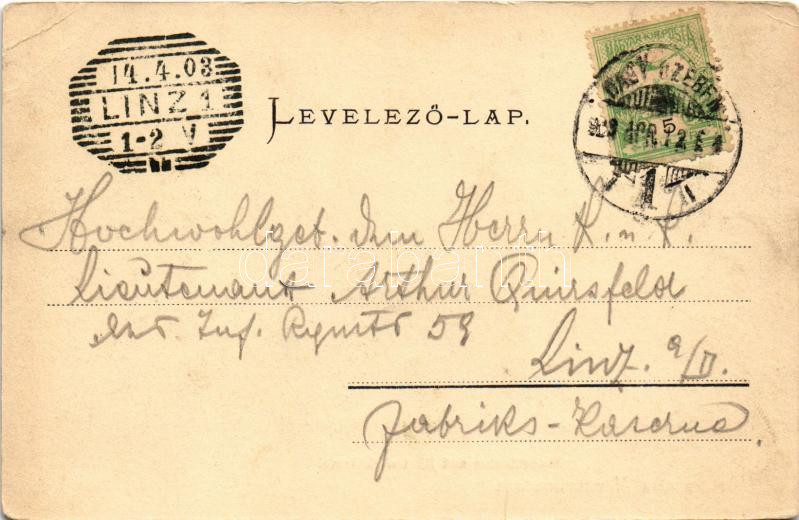 14.4.03
LINZ 1
1-2 V
LEVELEZŐ-LAP.
MAGYAR KIR. POSTA
NAGY SZEBEN
5
903 APR. 12
1
Hochwohlgeb. dem Herrn K. u. K.
Lieutenant Arthur Quirsfeld
des Inf. Rgmts 59
Linz. a/D.
Fabriks-Kaserne.
darabanth